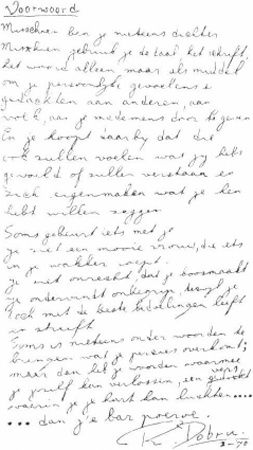 Voorwoord
Misschien ben je meteens dichter
Misschien gebruik je de taal, het schrift,
het woord alleen maar als middel
om je persoonlijke gevoelens &
gedachten aan anderen, aan
volk, aan je medemens door te geven
En je hoopt daarby dat die
ook zullen voelen wat jy hebt
gevoeld of zullen verstaan en
zich eigenmaken wat je hen
hebt willen zeggen.
Soms gebeurt iets met je
je ziet een mooie vrouw, die iets
in je wakker roept.
je ziet onrecht dat je
je ondervindt onbegrip, terwyl je
toch met de beste bedoelingen leeft
en streeft
Soms is meteens onder woorden te
brengen wat je precies overkomt;
maar dan bij je woorden waarmee
je jezelf kan verlossen, een vers
waarin je je hart kan luchten....
.... dan j'e bar poewe.
R. Dobru
2-70